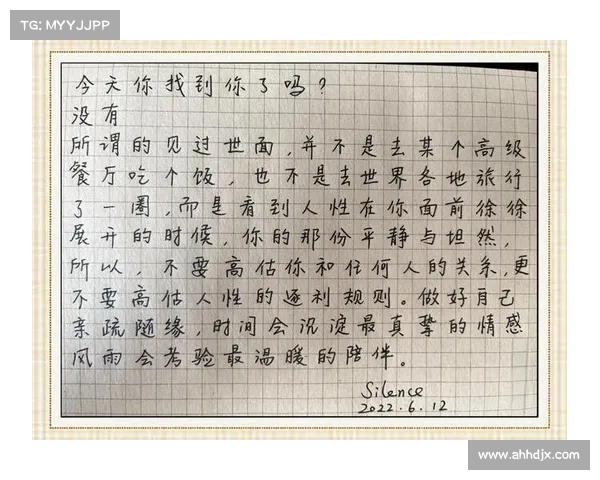 TG: MYYJJPP
今天你找到你了吗?
没有
所谓的见过世面,并不是去某个高级
餐厅吃个饭,也不是去世界各地旅行
了一圈,而是看到人性在你面前徐徐
展开的时候,你的那份平静与坦然,
所以,不要高估你和任何人的关系,更
不要高估人性的逐利规则。做好自己
亲疏随缘,时间会沉淀最真挚的情感
风雨会考验最温暖的陪伴。
Silence
2022.6.12
www.ahhdjx.com